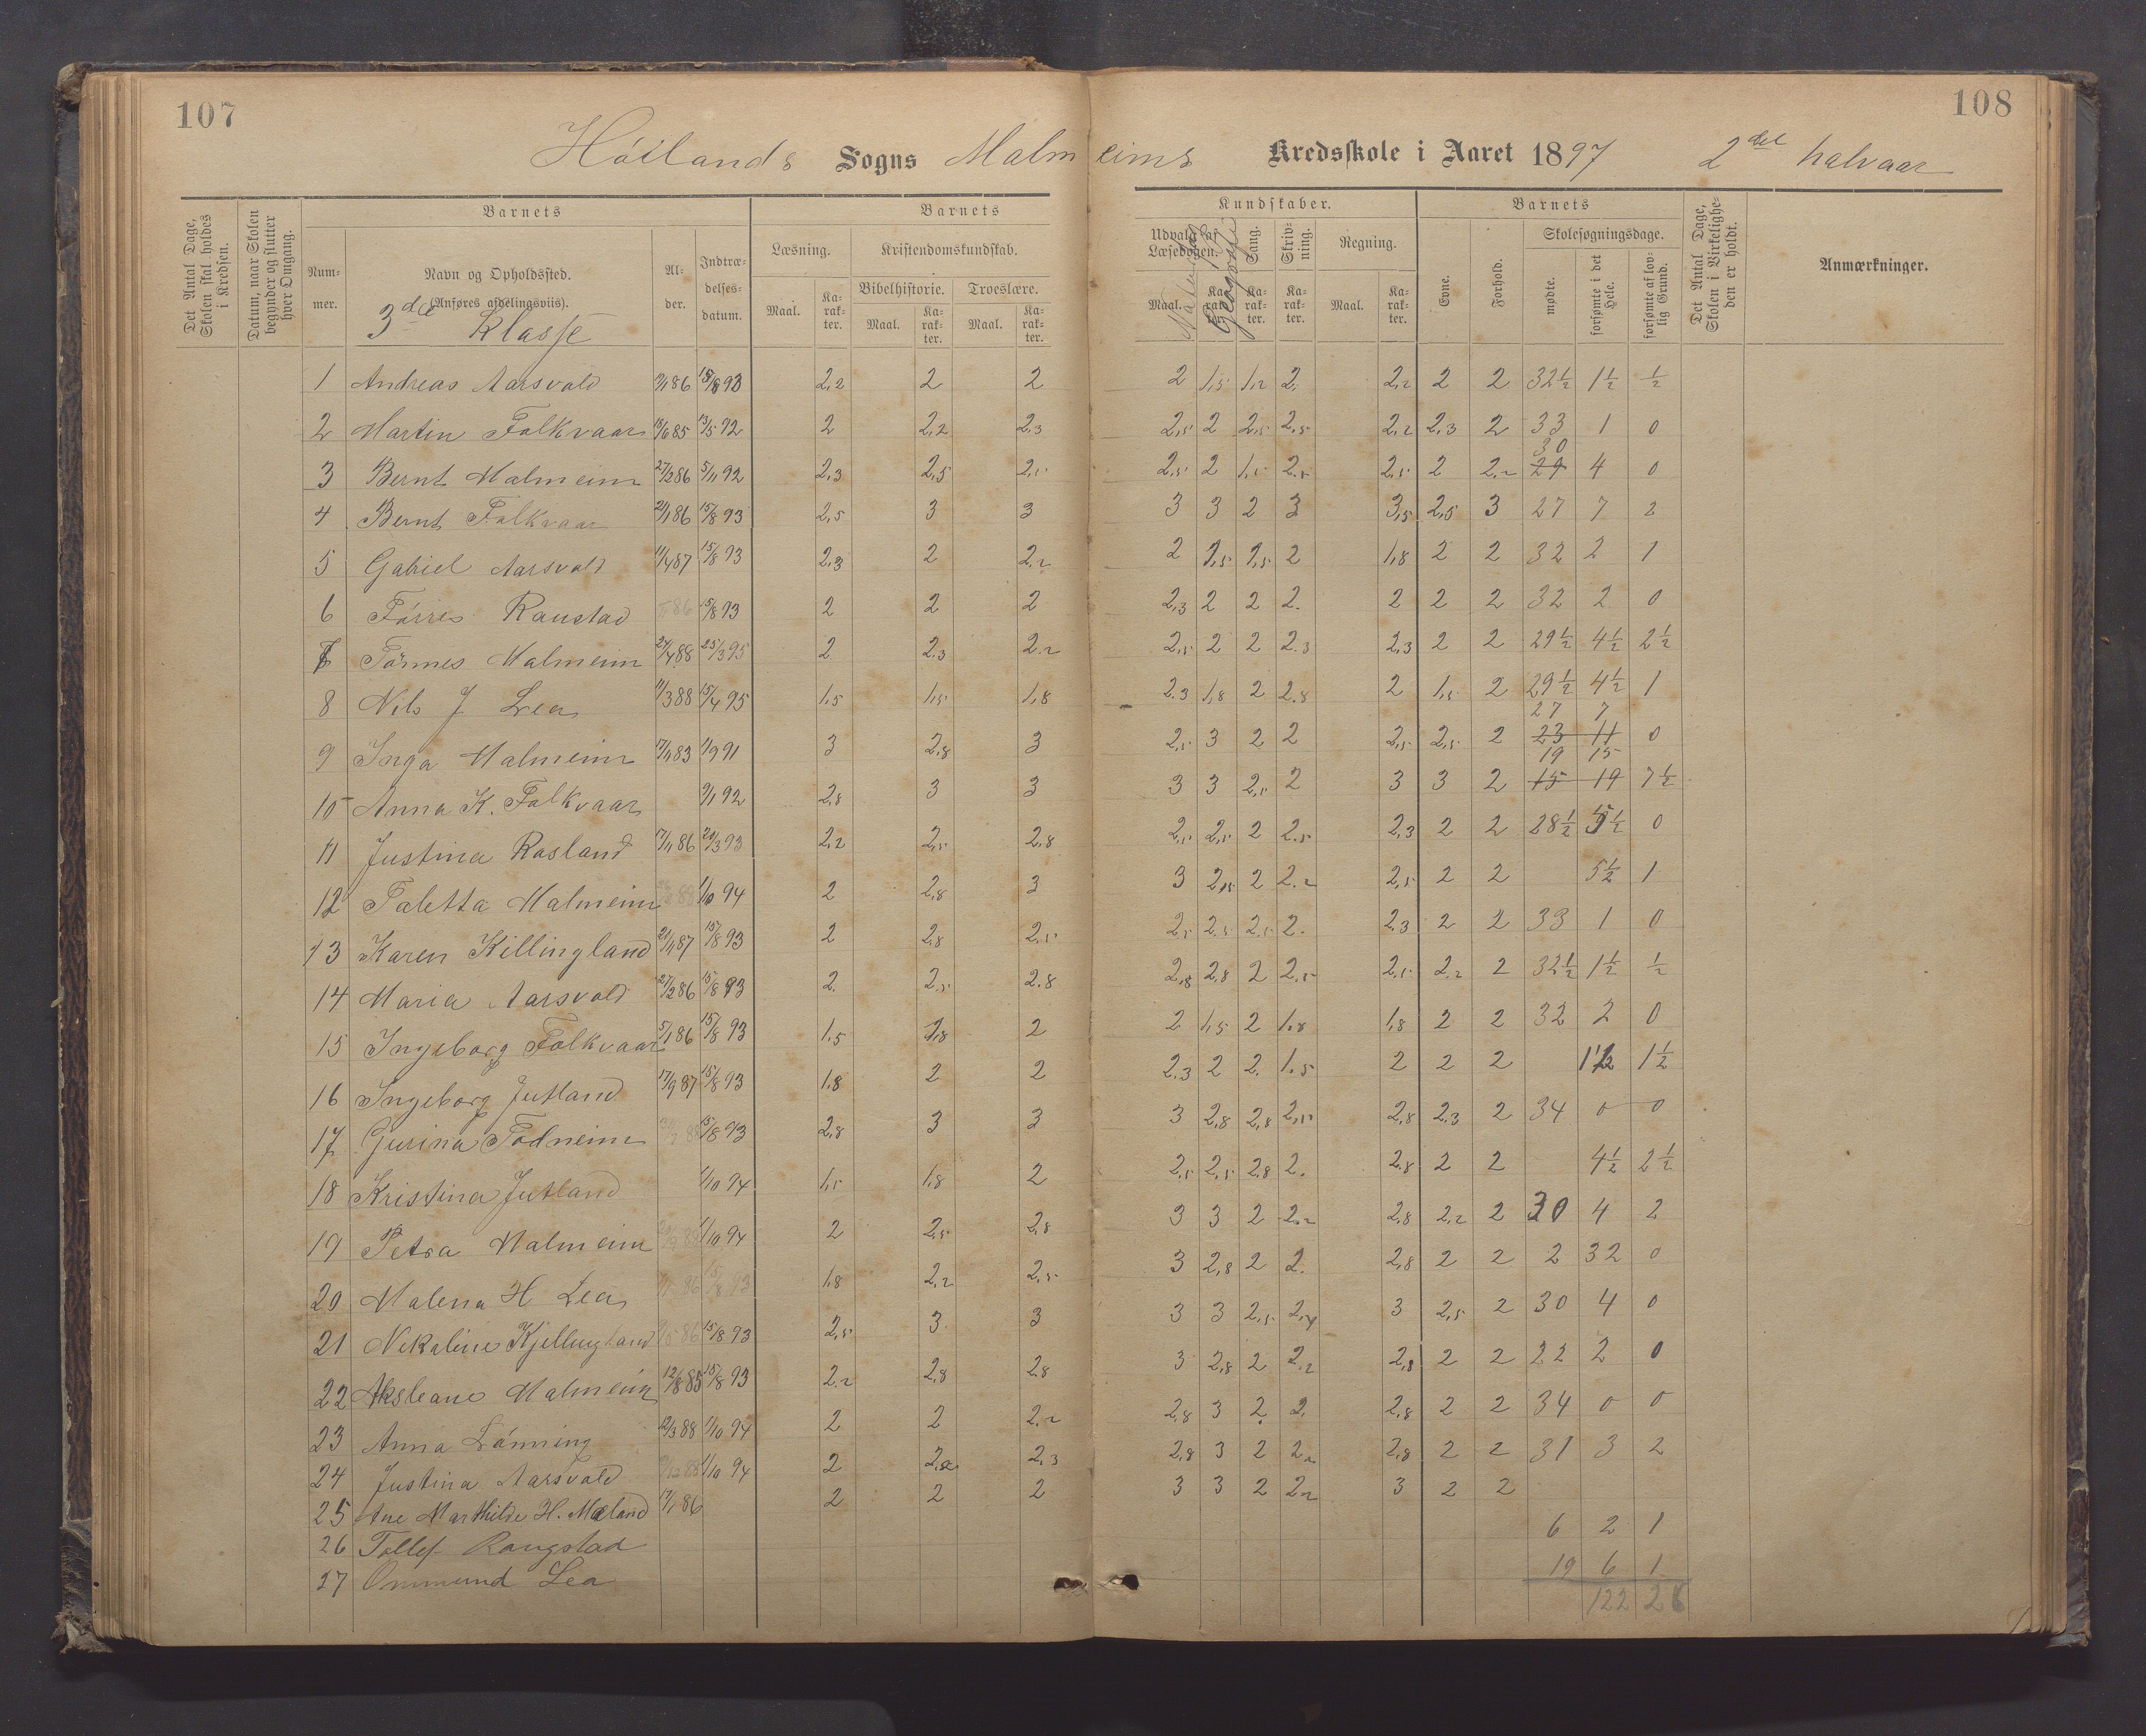 107
108
Höilands Sogns Malmeims Kredsskole i Aaret 1897 2del halvaar
Det Antal Dage, Skolen skal holdes i Kredsen.
Datum, naar Skolen begynder og slutter hver Omgang.
Barnets
Num-mer.
Navn og Opholdssted.
(Anføres afdelingsviis).
3die Klasse
Al-der.
Indtræ-delses-datum.
Barnets
Læsning.
Kristendomskundskab.
Bibelhistorie. Troeslære.
Maal. Ka-rak-ter. Maal. Ka-rak-ter. Maal. Ka-rak-ter.
Kundskaber.
Udvalg af Læsebogen. Sang. Skriv-ning. Regning.
Geografi
Maal. Ka-rak-ter. Ka-rak-ter. Ka-rak-ter. Maal. Ka-rak-ter.
Barnets
Evne. Forhold.
Skolesøgningsdage.
mødte. forsømte i det Hele. forsømte af lov-lig Grund.
Det Antal Dage, Skolen i Virkelighe-den er holdt.
Anmærkninger.
1 Andreas Aarsvold 9/1 86 15/8 93 2,2 2 2 2 1,5 1,2 2. 2,2 2 2 32½ 1½ ½
2 Martin Folkvaar 18/6 85 13/5 92 2 2,2 2,3 2,5 2 2,5 2,5 2,2 2,3 2 33 1 0
3 Bernt Malmeim 27/2 86 5/11 92 2,3 2,5 2,5 2,5 2 1,5 2,5 2,5 2 2,2 30 29 4 0
4 Bernt Folkvaar 21/1 86 15/8 93 2,5 3 3 3 3 2 3 3,5 2,5 3 27 7 2
5 Gabriel Aarsvold 11/4 87 15/8 93 2,3 2 2,2 2 1,5 1,5 2 1,8 2 2 32 2 1
6 Törres Raustad 86 15/8 93 2 2 2 2,3 2 2 2. 2 2 2 32 2 0
7 Tönnes Malmeim 24/4 88 25/3 95 2 2,3 2,2 2,5 2 2 2,3 2,3 2 2 29½ 4½ 2½
8 Nils J Lea 11/3 88 15/4 95 1,5 1,5 1,8 2,3 1,8 2 2,8 2 1,5 2 29½ 4½ 1
9 Inga Malmeim 17/11 83 1/9 91 3 2,8 3 2,5 3 2 2 2,5 2,5 2 27 7 23 11 0
10 Anna K. Folkvaar 9/1 92 2,8 3 3 3 3 2,5 2 3 3 2 19 15 15 19 7½
11 Justina Rosland 17/11 86 29/3 93 2,2 2,5 2,8 2,5 2,5 2 2,5 2,3 2 2 28½ 5½ 0
12 Taletta Malmeim 88 1/10 94 2 2,8 3 3 2,5 2 2,2 2,5 2 2 5½ 1
13 Karen Killingland 21/11 87 15/8 93 2 2,8 2,5 2,5 2,5 2,5 2. 2,3 2 2 33 1 0
14 Maria Aarsvold 27/2 86 15/8 93 2. 2,5 2,8 2,8 2,8 2 2,5 2,5 2,2 2 32½ 1½ ½
15 Ingeborg Folkvaar 5/1 86 15/8 93 1,5 1,8 2 2 1,5 2 1,8 1,8 2 2 32 2 0
16 Ingeborg Jutland 17/9 87 15/8 93 1,8 2 2 2,3 2 2. 1,5 2 2 2 1½
17 Gurina Todneim 88 15/8 93 2,8 3 3 3 2,8 2,8 2,5 2,8 2,3 2 34 0 0
18 Kristina Jutland 1/10 94 1,5 1,8 2 2,5 2,5 2,8 2. 2,8 2 2 4½ 2½
19 Petra Malmeim 1/10 94 2 2,5 2,8 3 3 2 2,2 2,8 2,2 2 30 4 2
20 Malena H Lea 86 15/8 93 1,8 2,2 2,5 3 2,8 2 2. 2,8 2 2 2 32 0
21 Nikaline Kjellingland 86 15/8 93 2,5 3 3 3 3 2,5 3 2,5 2 30 4 0
22 Aksleane Malmeim 12/8 85 15/8 93 2,2 2,8 2,8 3 2,8 2 2,2 2,8 2 2 22 2 0
23 Anna Lönning 12/3 88 1/10 94 2 2 2,2 2,8 3 2 2. 2,8 2 2 34 0 0
24 Justina Aarsvold 88 1/10 94 2 2,3 2,8 3 2 2,2 2,8 2 2 31 3 2
25 Ane Marthilde H. Mæland 17/1 86 2 2 2 3 3 2 2,2 3 2 2
26 Tollef Rongstad 6 2 1
27 Ommund Lea 19 6 1
122 28